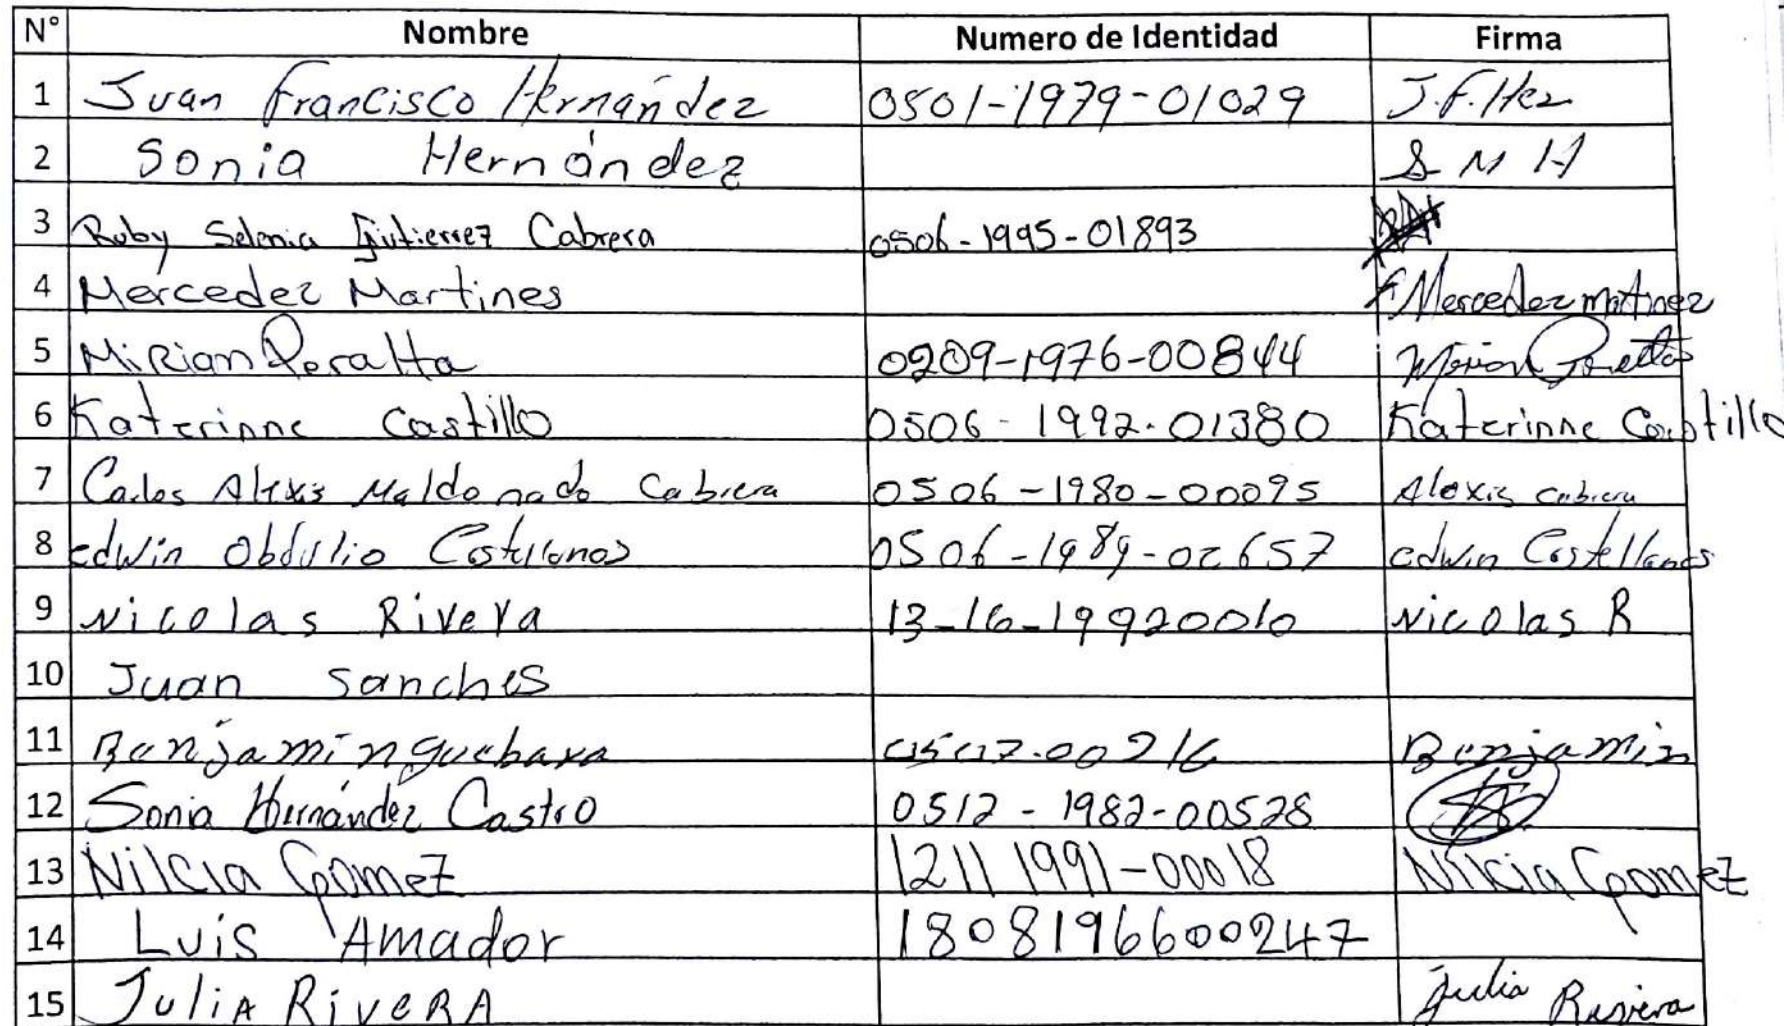 N° Nombre Numero de Identidad Firma
1 Juan Francisco Hernández 0501-1979-01029 J.F. Hez
2 Sonia Hernández S M H
3 Ruby Selenia Gutierrez Cabrera 0506-1995-01893
4 Mercedez Martines Mercedez martinez
5 Mirian Peralta 0209-1976-00844 Mirian Peralta
6 Katerinne Castillo 0506-1992-01380 Katerinne Castillo
7 Carlos Alexis Maldonado Cabrera 0506-1980-00095 Alexis cabrera
8 edwin Obdulio Castellanos 0506-1989-02657 edwin Castellanos
9 Nicolas Rivera 13-16-19920010 Nicolas R
10 Juan Sanches
11 Benjamin guebara Benjamin
12 Sonia Hernández Castro 0512-1982-00528
13 Nilcia Gomez 1211 1991-00018 Nilcia Gomez
14 Luis Amador 1808196600247
15 Julia RiveRA Julia Riviera